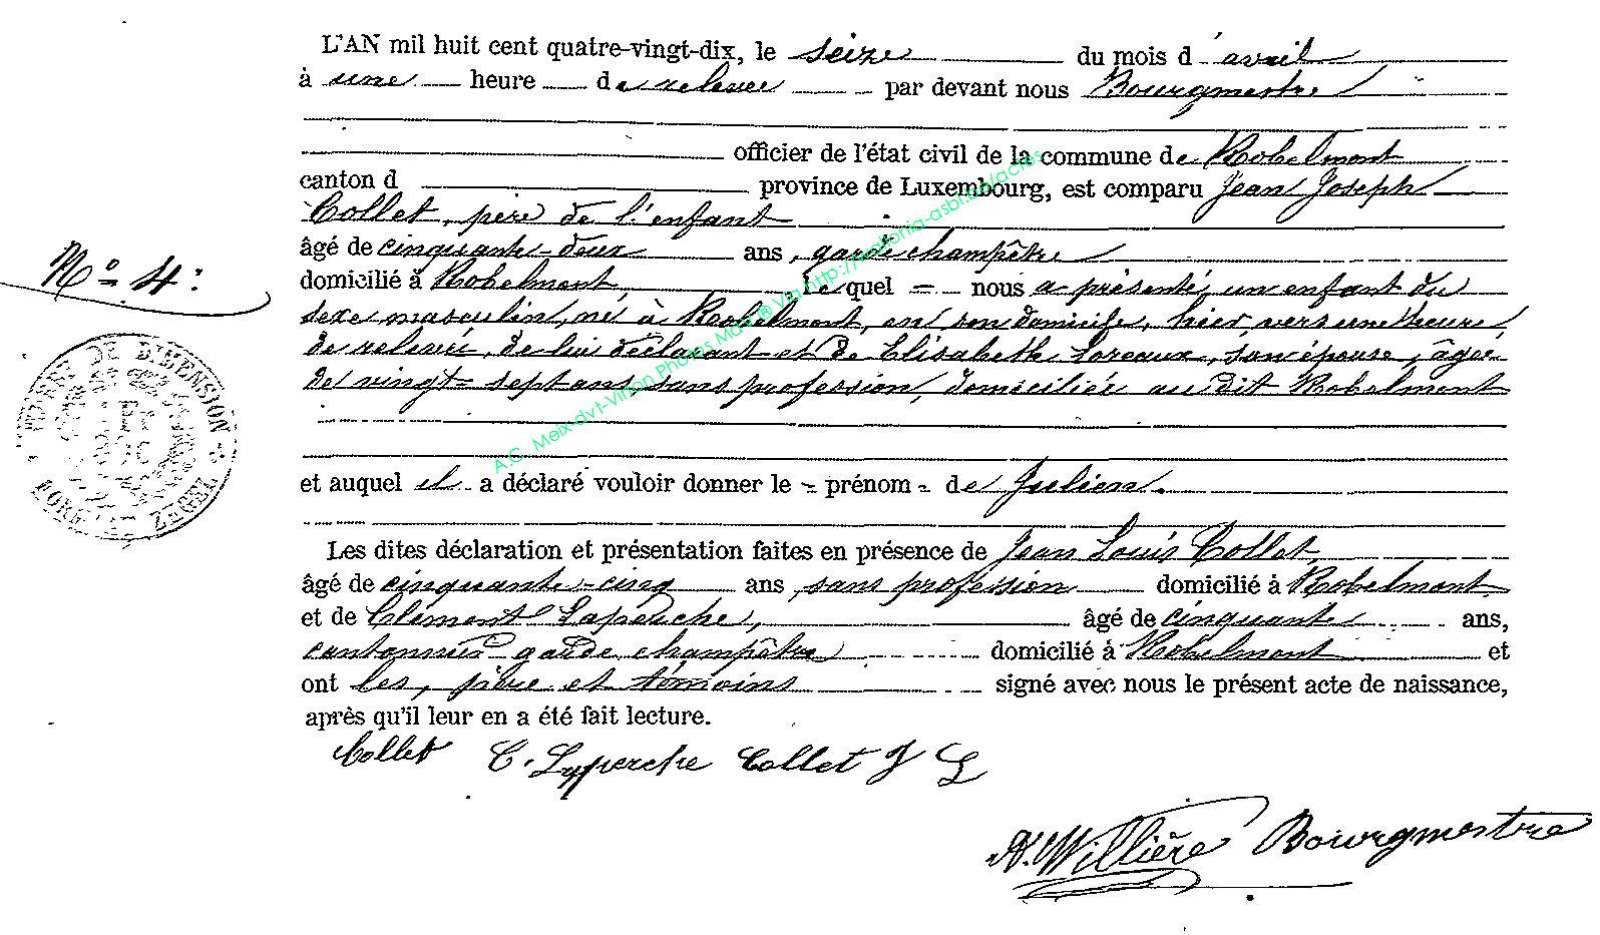 L'AN mil huit cent quatre-vingt-dix, le seize du mois d'avril
à une heure de relevée par devant nous Bourgmestre
officier de l'état civil de la commune de Robelmont
canton d province de Luxembourg, est comparu Jean Joseph
Collet, père de l'enfant
âgé de cinquante-deux ans, garde champêtre
domicilié à Robelmont, lequel = nous a présenté un enfant du
sexe masculin, né à Robelmont, en son domicile, hier, vers une heure
de relevée, de lui déclarant et de Elisabeth Loreaux, son épouse, âgée
de vingt-sept ans, sans profession, domiciliée au dit Robelmont
et auquel il a déclaré vouloir donner le = prénom = de Julien.
Les dites déclaration et présentation faites en présence de Jean Louis Collet,
âgé de cinquante-cinq ans, sans profession domicilié à Robelmont
et de Clément Laperche, âgé de cinquante ans,
cantonnier garde champêtre domicilié à Robelmont et
ont les, père et témoins signé avec nous le présent acte de naissance,
après qu'il leur en a été fait lecture.
Collet C. Laperche Collet J L
Willière Bourgmestre
N° 4:
TIMBRE DE DIMENSION
FORMAAT ZEGEL
A.C. Meix-dvt-Virton Photos M ® Via http://wallonia-asbl.be/actes